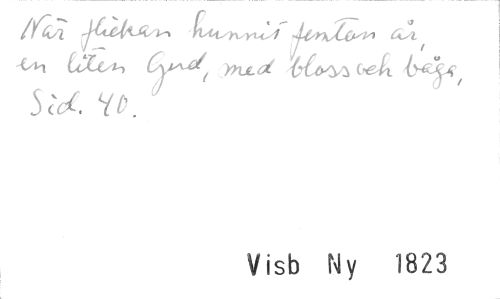 När flickan hunnit femton år,
en liten Gud, med bloss och båga,
Sid. 40.
Visb Ny 1823